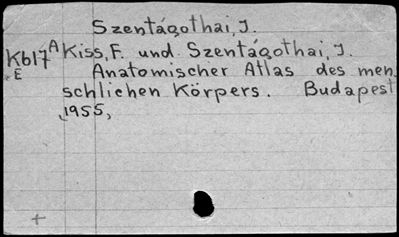 Szentágothai, J.
Kb17 A Kiss, F. und Szentágothai, J.
E Anatomischer Atlas des men
schlichen Körpers. Budapest
1955,
+